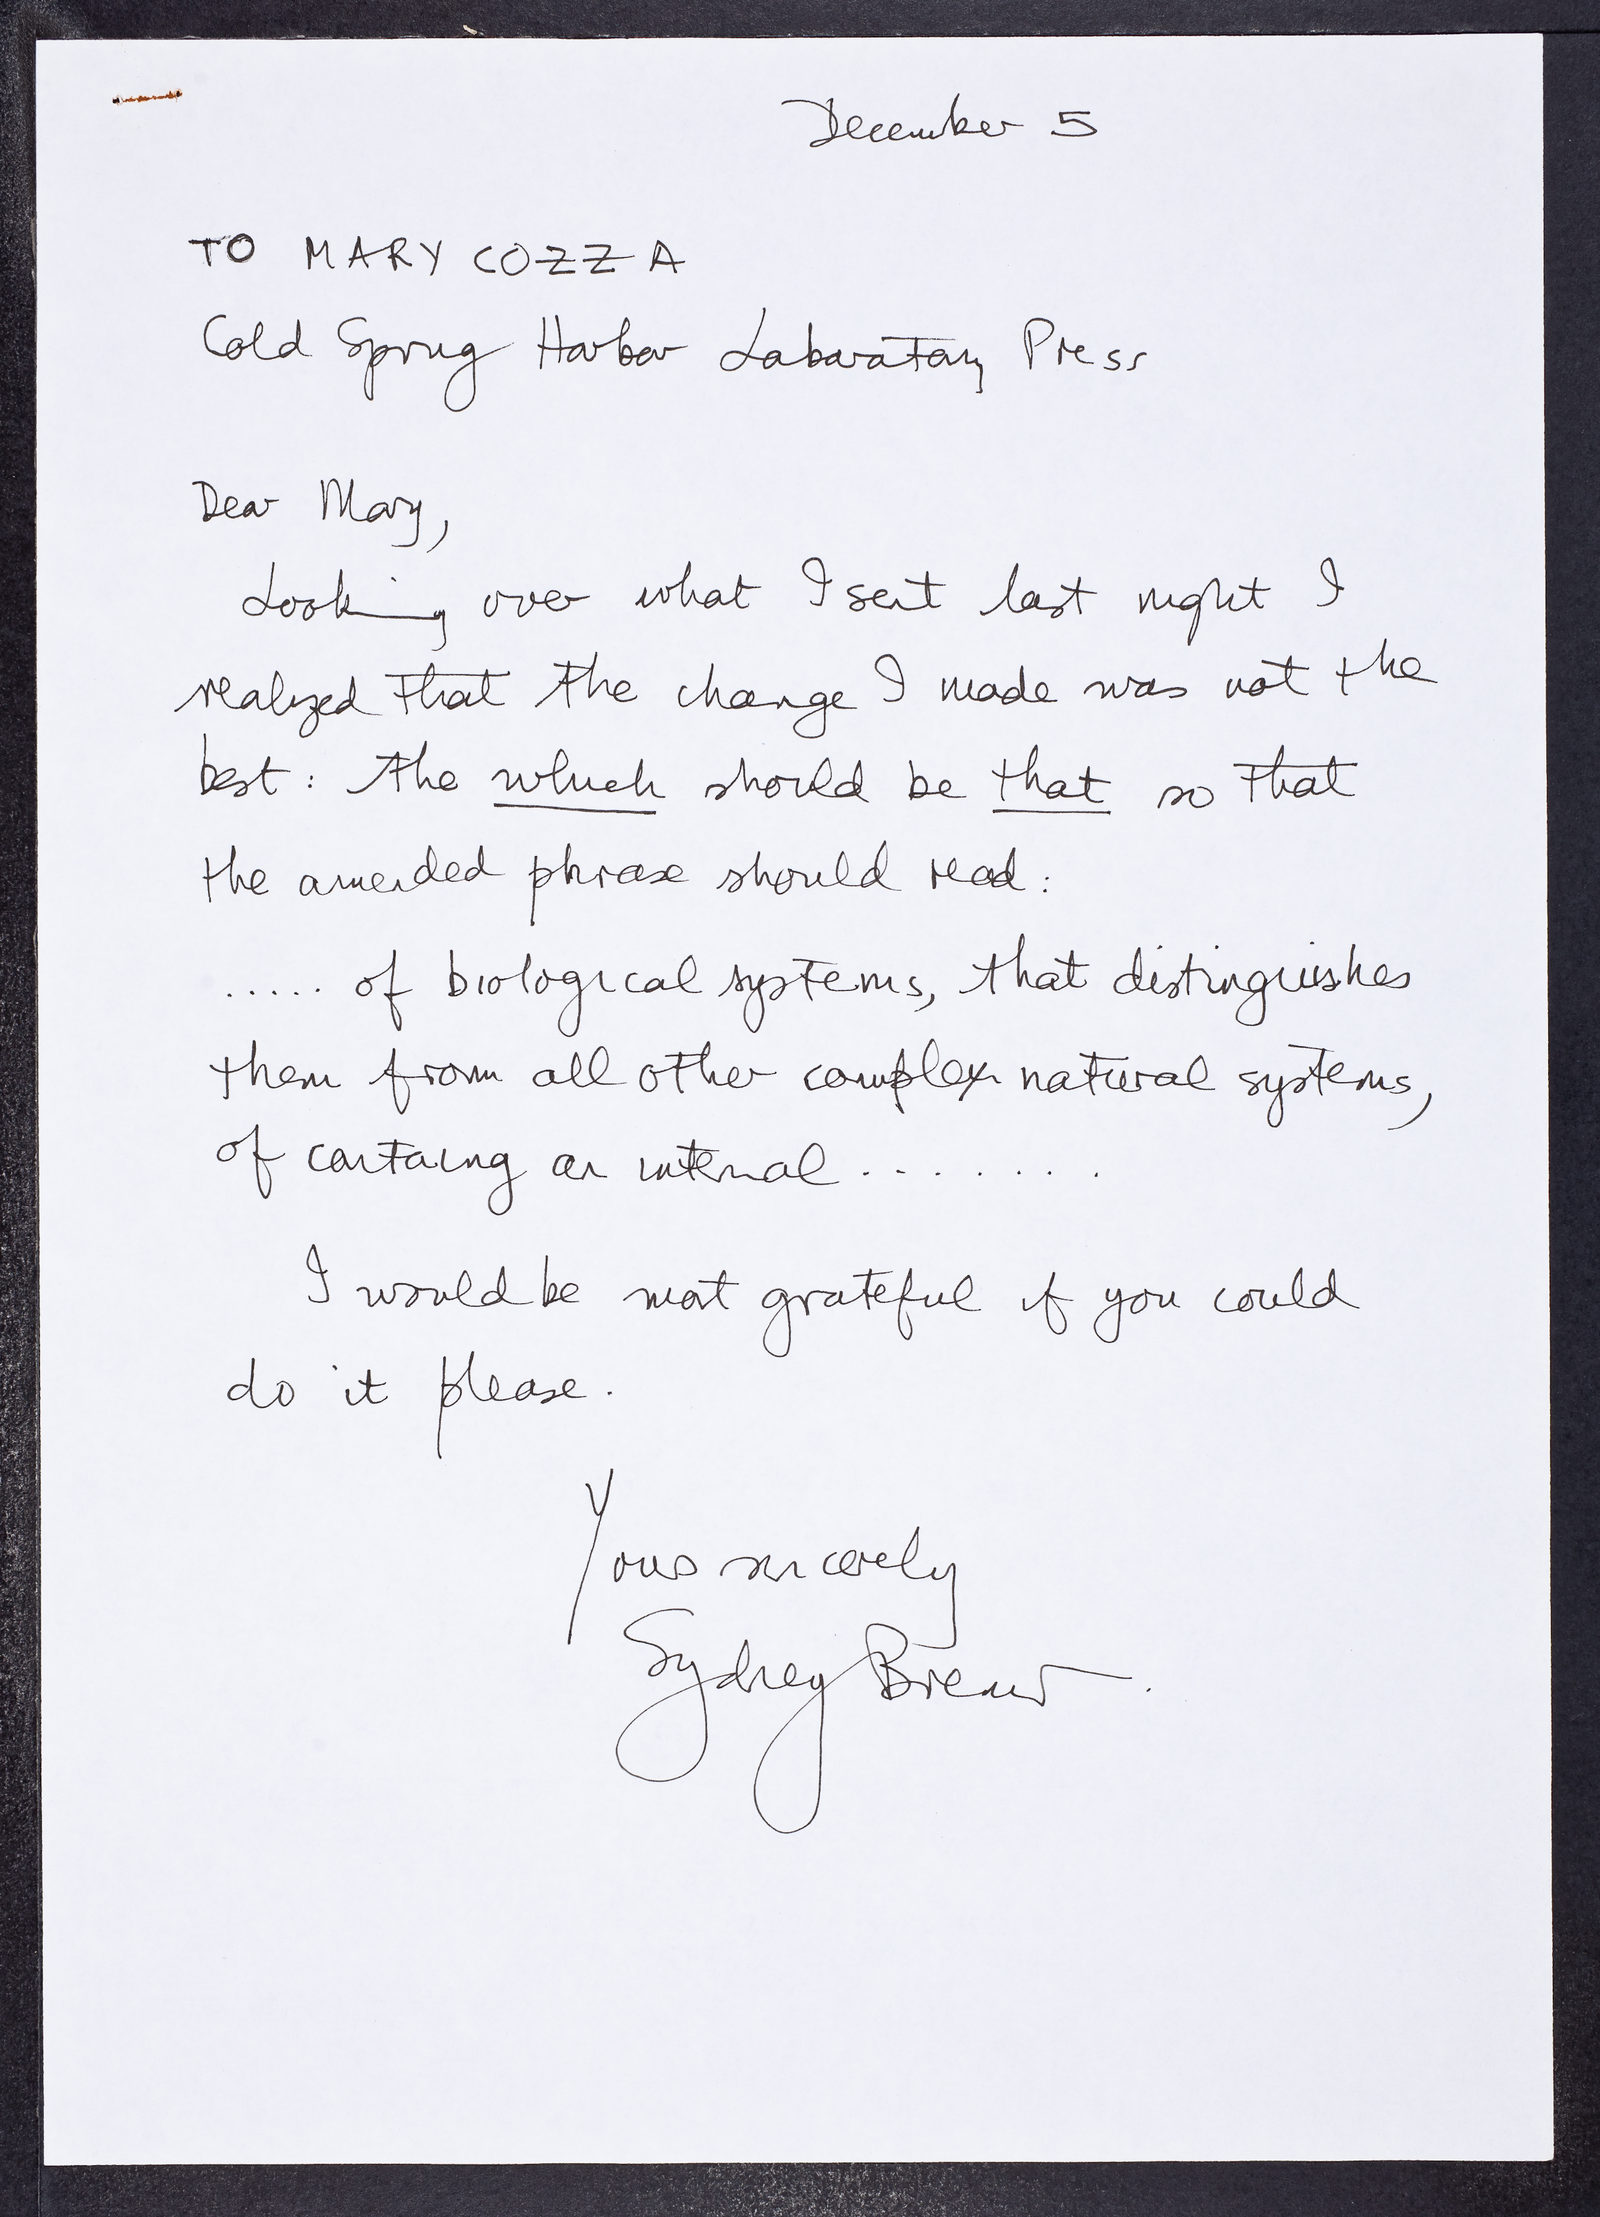 December 5
TO MARY COZZA
Cold Spring Harbor Laboratory Press
Dear Mary,
Looking over what I sent last night I
realized that the change I made was not the
best: the which should be that so that
the amended phrase should read:
..... of biological systems, that distinguishes
them from all other complex natural systems,
of containg an internal ........
I would be most grateful if you could
do it please.
Yours sincerely
Sydney Brenner.